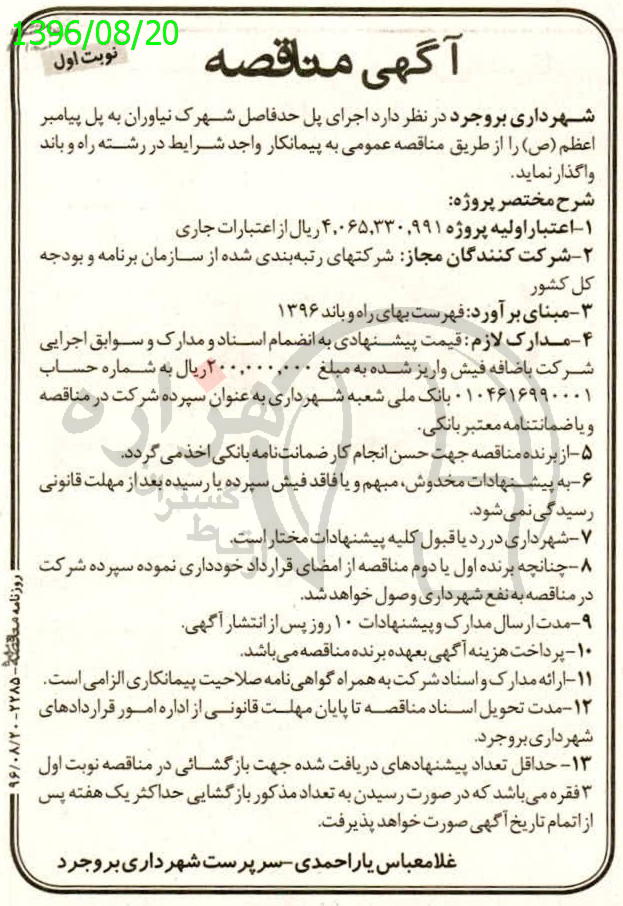 1396/08/20
آگهی مناقصه
نوبت اول
شهرداری بروجرد در نظر دارد اجرای پل حدفاصل شهرک نیاوران به پل پیامبر
اعظم (ص) را از طریق مناقصه عمومی به پیمانکار واجد شرایط در رشته راه و باند
واگذار نماید.
شرح مختصر پروژه:
۱-اعتبار اولیه پروژه ۴,۰۶۵,۳۳۰,۹۹۱ ریال از اعتبارات جاری
۲-شرکت کنندگان مجاز: شرکتهای رتبه‌بندی شده از سازمان برنامه و بودجه
کل کشور
۳-مبنای برآورد: فهرست بهای راه و باند ۱۳۹۶
۴-مدارک لازم: قیمت پیشنهادی به انضمام اسناد و مدارک و سوابق اجرایی
شرکت باضافه فیش واریز شده به مبلغ ۲۰۰,۰۰۰,۰۰۰ ریال به شماره حساب
۰۱۰۴۶۱۶۹۹۰۰۰۱ بانک ملی شعبه شهرداری به عنوان سپرده شرکت در مناقصه
و یا ضمانتنامه معتبر بانکی.
۵-از برنده مناقصه جهت حسن انجام کار ضمانت‌نامه بانکی اخذ می گردد.
۶-به پیشنهادات مخدوش، مبهم و یا فاقد فیش سپرده یا رسیده بعد از مهلت قانونی
رسیدگی نمی‌شود.
۷-شهرداری در رد یا قبول کلیه پیشنهادات مختار است.
۸-چنانچه برنده اول یا دوم مناقصه از امضای قرارداد خودداری نموده سپرده شرکت
در مناقصه به نفع شهرداری وصول خواهد شد.
۹-مدت ارسال مدارک و پیشنهادات ۱۰ روز پس از انتشار آگهی.
۱۰-پرداخت هزینه آگهی بعهده برنده مناقصه می‌باشد.
۱۱-ارائه مدارک و اسناد شرکت به همراه گواهی‌نامه صلاحیت پیمانکاری الزامی است.
۱۲-مدت تحویل اسناد مناقصه تا پایان مهلت قانونی از اداره امور قراردادهای
شهرداری بروجرد.
۱۳- حداقل تعداد پیشنهادهای دریافت شده جهت بازگشائی در مناقصه نوبت اول
۳ فقره می‌باشد که در صورت رسیدن به تعداد مذکور بازگشایی حداکثر یک هفته پس
از اتمام تاریخ آگهی صورت خواهد پذیرفت.
غلامعباس یاراحمدی-سرپرست شهرداری بروجرد
روزنامه مناقصه-۲۲۸۵-۹۶/۰۸/۲۰
هزاره
گسترش
ارتباط